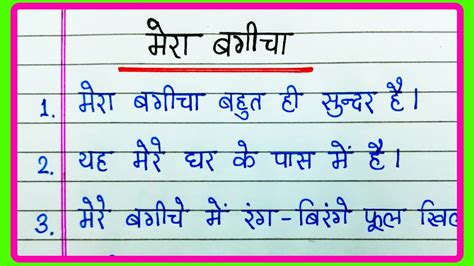 मेरा बगीचा
1. मेरा बगीचा बहुत ही सुन्दर है।
2. यह मेरे घर के पास में है।
3. मेरे बगीचे में रंग-बिरंगे फूल खिल